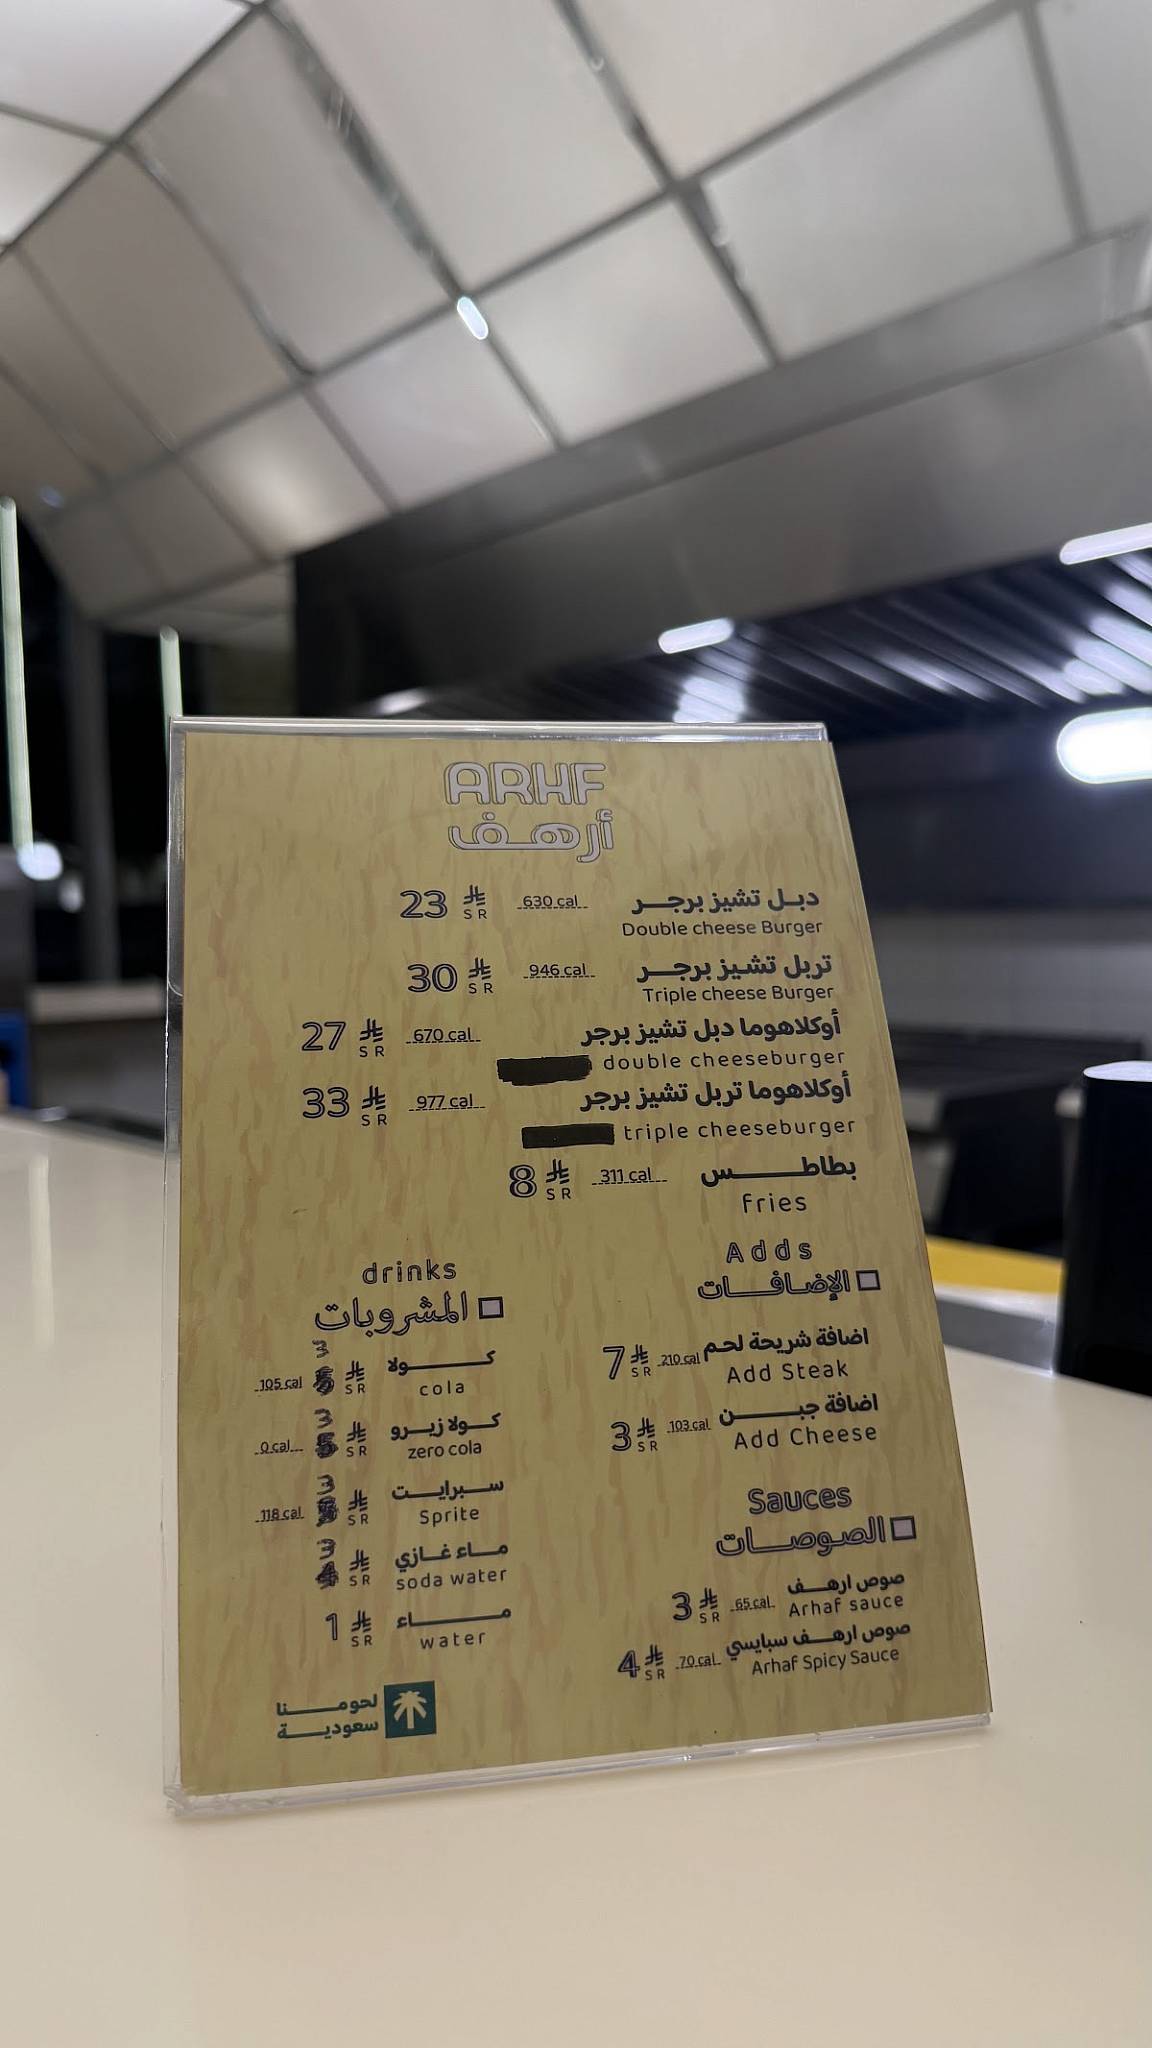 ARHF
أرهف
دبل تشيز برجر 630 cal SR 23
Double cheese Burger
تربل تشيز برجر 946 cal SR 30
Triple cheese Burger
أوكلاهوما دبل تشيز برجر 670 cal SR 27
double cheeseburger
أوكلاهوما تربل تشيز برجر 977 cal SR 33
triple cheeseburger
بطاطس 311 cal SR 8
fries
Adds
الإضافات
اضافة شريحة لحم 210 cal SR 7
Add Steak
اضافة جبن 103 cal SR 3
Add Cheese
Sauces
الصوصات
صوص ارهف 65 cal SR 3
Arhaf sauce
صوص ارهف سبايسي 70 cal SR 4
Arhaf Spicy Sauce
drinks
المشروبات
كولا SR 3 105 cal
cola
كولا زيرو SR 3 0 cal
zero cola
سبرايت SR 3 118 cal
Sprite
ماء غازي SR 3
soda water
ماء SR 1
water
لحومنا
سعودية